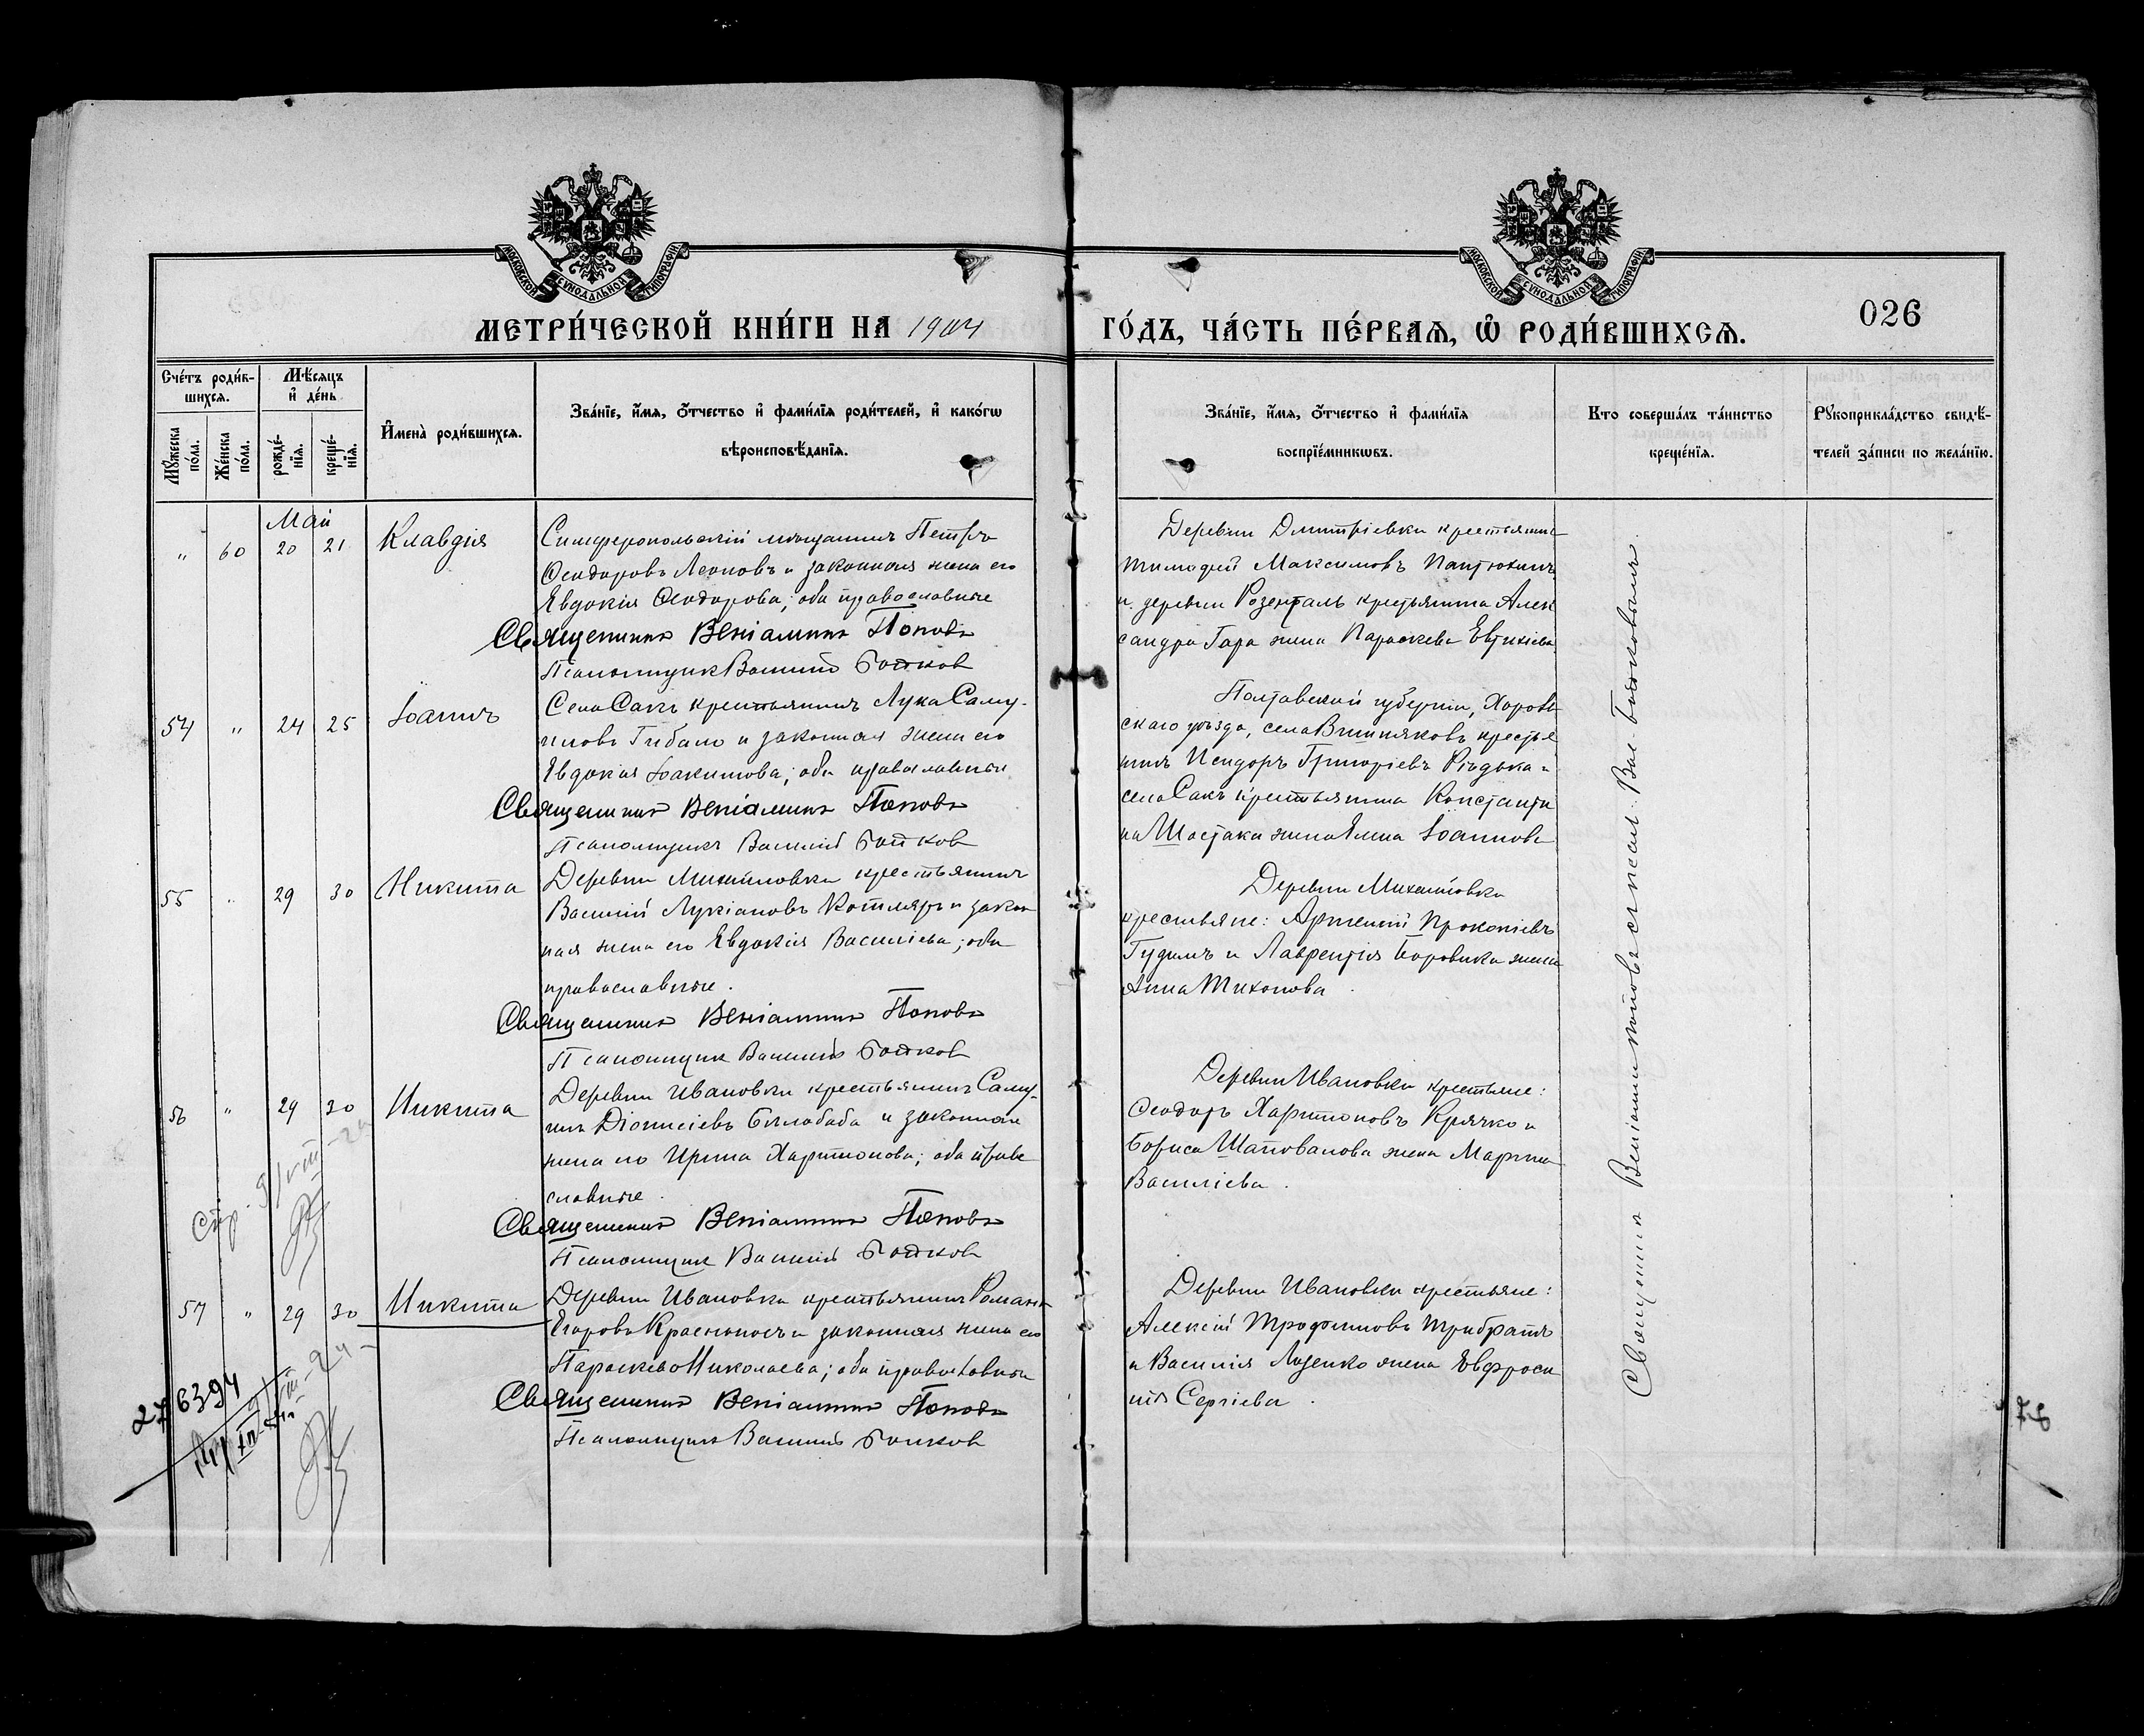 МОСКОВСКОЙ СУНОДАЛЬНОЙ ТИПОГРАФІИ
МОСКОВСКОЙ СУНОДАЛЬНОЙ ТИПОГРАФІИ
026
МЕТРИ́ЧЕСКОЙ КНИ́ГИ НА 1904
ГО́ДЪ, ЧА́СТЬ ПЕ́РВАѦ, Ѡ҆ РОДИ́ВШИХСѦ.
Сче́тъ роди́в-
шихсѧ.
Мѣ́сѧцъ
и҆ де́нь
Мꙋ́жеска
по́ла.
Же́нска
по́ла.
рожде́-
нїѧ.
креще́-
нїѧ.
И҆мена̀ роди́вшихсѧ.
Зва́нїе, и҆́мѧ, о҆́тчество и҆ фами́лїѧ роди́телей, и҆ како́гѡ
вѣроисповѣ́данїѧ.
Зва́нїе, и҆́мѧ, о҆́тчество и҆ фами́лїѧ
воспрїе́мникѡвъ.
Кто соверша́лъ та́инство
креще́нїѧ.
Рꙋкоприкла́дство свидѣ́-
телей за́писи по жела́нїю.
Май
" 60 20 21 Клавдія
Симферопольскій мѣщанинъ Петръ
Ѳеодоровъ Леоновъ и законная жена его
Евдокія Ѳеодорова; оба православные
Священникъ Веніаминъ Поповъ
Псаломщикъ Василій Бойков
Деревни Дмитріевки крестьянинъ
Тимофей Максимовъ Пантюхинъ
и деревни Розенталь крестьянина Алек
сандра Гара жена Параскева Евтихіева
54 " 24 25 Іоаннъ
Села Сакъ крестьянинъ Лука Саму-
иловъ Гибало и законная жена его
Евдокія Іоакимова; оба православные
Священникъ Веніаминъ Поповъ
Псаломщикъ Василій Бойков
Полтавской губерніи, Хороль
скаго уѣзда, села Вишняковъ крестья
нинъ Исидоръ Григоріевъ Рѣдька и
села Сакъ крестьянина Константи
на Шостака жена Елена Іоаннова
55 " 29 30 Никита
Деревни Михайловки крестьянинъ
Василій Лукіановъ Котляръ и закон
ная жена его Евдокія Василіева; оба
православные.
Священникъ Веніаминъ Поповъ
Псаломщик Василій Бойков
Деревни Михайловки
крестьяне: Артемій Прокопіевъ
Гудимъ и Лаврентія Боровика жена
Анна Тихонова.
56 " 29 30 Никита
Деревни Ивановки крестьянинъ Саму-
илъ Діонисіевъ Бѣлобаба и законная
жена его Ирина Харитонова; оба право
славные.
Священникъ Веніаминъ Поповъ
Псаломщик Василій Бойков
Деревни Ивановки крестьяне:
Ѳеодоръ Харитоновъ Крячко и
Бориса Шаповалова жена Марина
Василіева.
57 " 29 30 Никита
Деревни Ивановки крестьянинъ Романъ
Егоровъ Красноносъ и законная жена его
Параскева Николаева; оба православные
Священникъ Веніаминъ Поповъ
Псаломщикъ Василій Бойков
Деревни Ивановки крестьяне:
Алексій Трофимовъ Трибратъ
и Василія Лазенко жена Евфроси
нія Сергіева.
Священникъ Веніаминъ Поповъ съ псал. Вас. Бойковымъ
276394